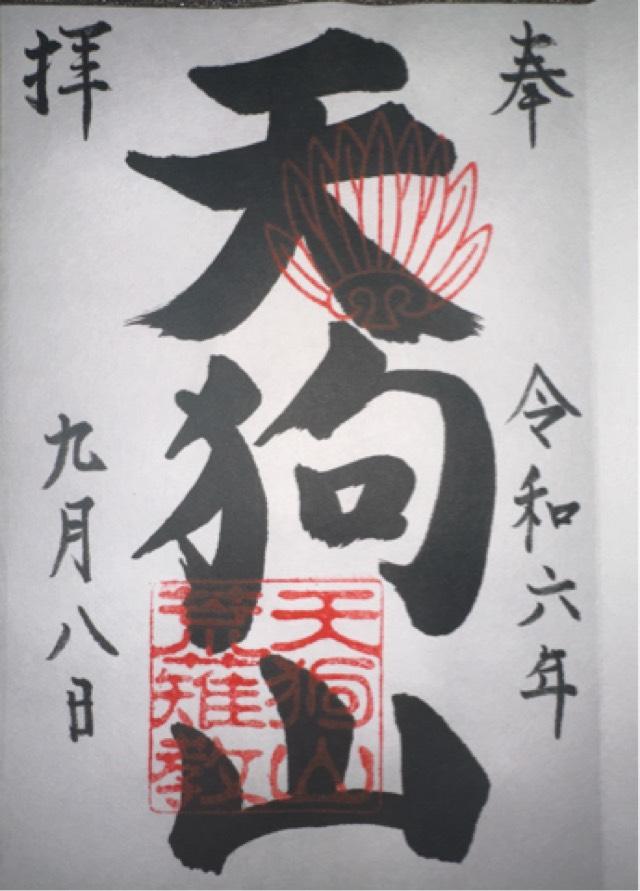 奉拝
令和六年
天狗山
九月八日
天狗山
薙教